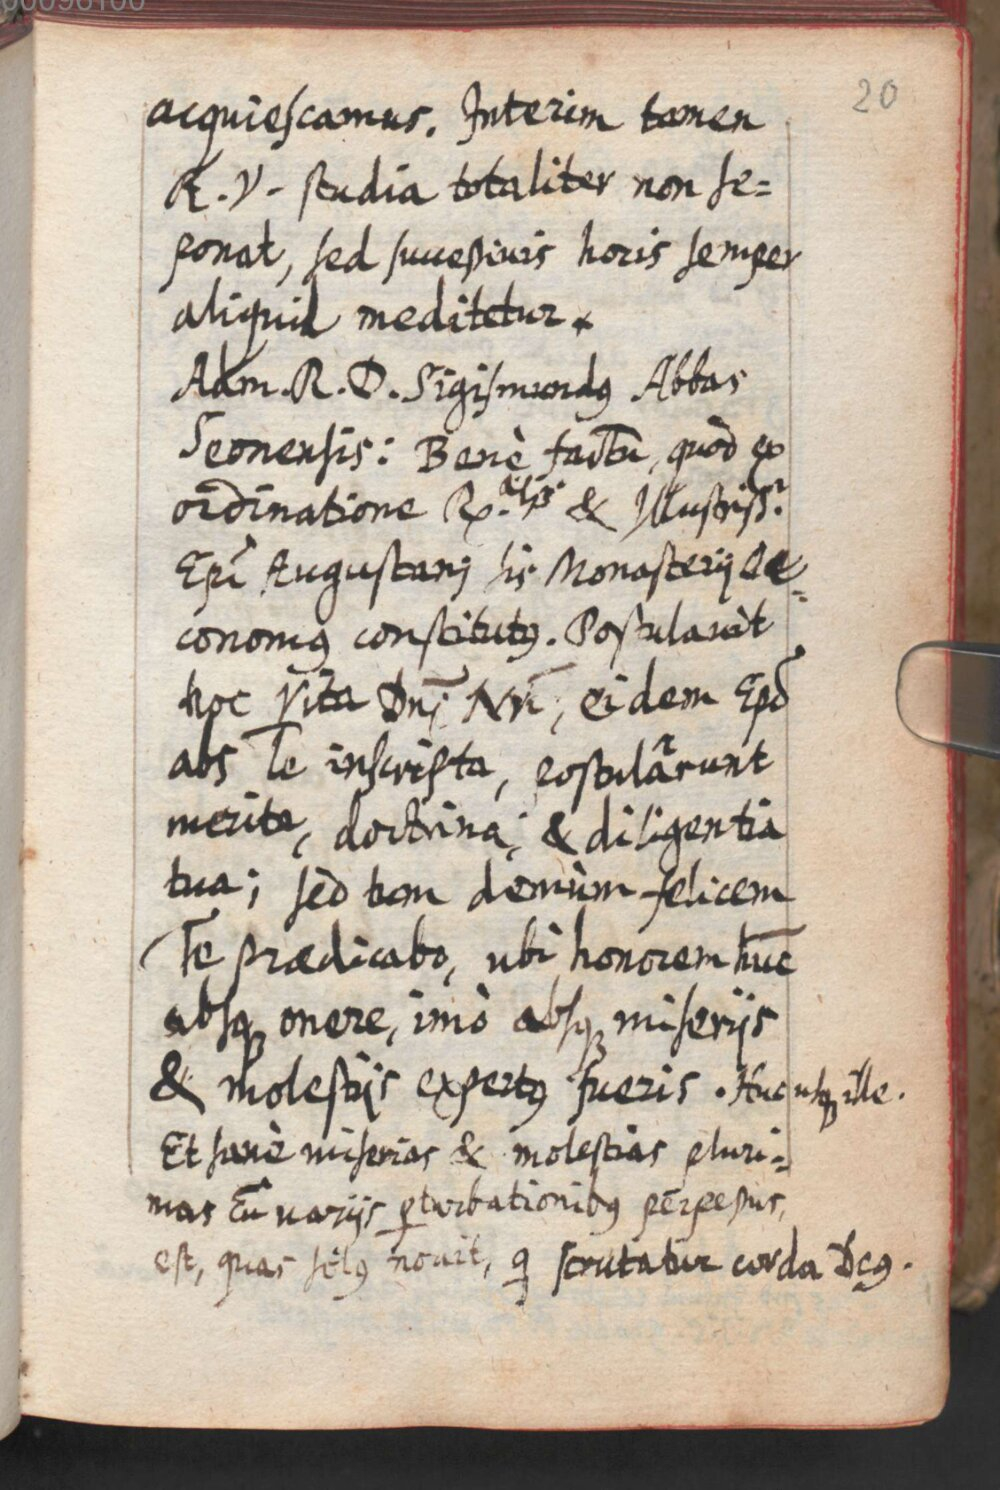 20
acquiescamus. Interim tamen
R. V. studia totaliter non se=
ponat, sed succesiuis horis semper
aliquid meditetur.
Adm. R. D. Sigismundꝰ Abbas
Seonensis: Benè factũ, quòd ex
ordinatione & Illustriss.
Epi Augustanj sis Monasterij Oe=
conomꝰ constitutꝰ. Postulauit
hoc Vita Dnj Nri, eidem Epõ
abs Te inscripta, postulârunt
merita, doctrina, & diligentia
tua; sed tam demùm felicem
Te prædicabo, ubi honorem hũc
absqꝫ onere, imò absqꝫ miserijs
& molestijs expertꝰ fueris. Hucusqꝫ ille.
Et sanè miserias & molestias pluri=
mas cũ uarijs ꝑturbationibꝰ perpessus,
est, quas solꝰ nouit, q̃ scrutatur corda Deꝰ.